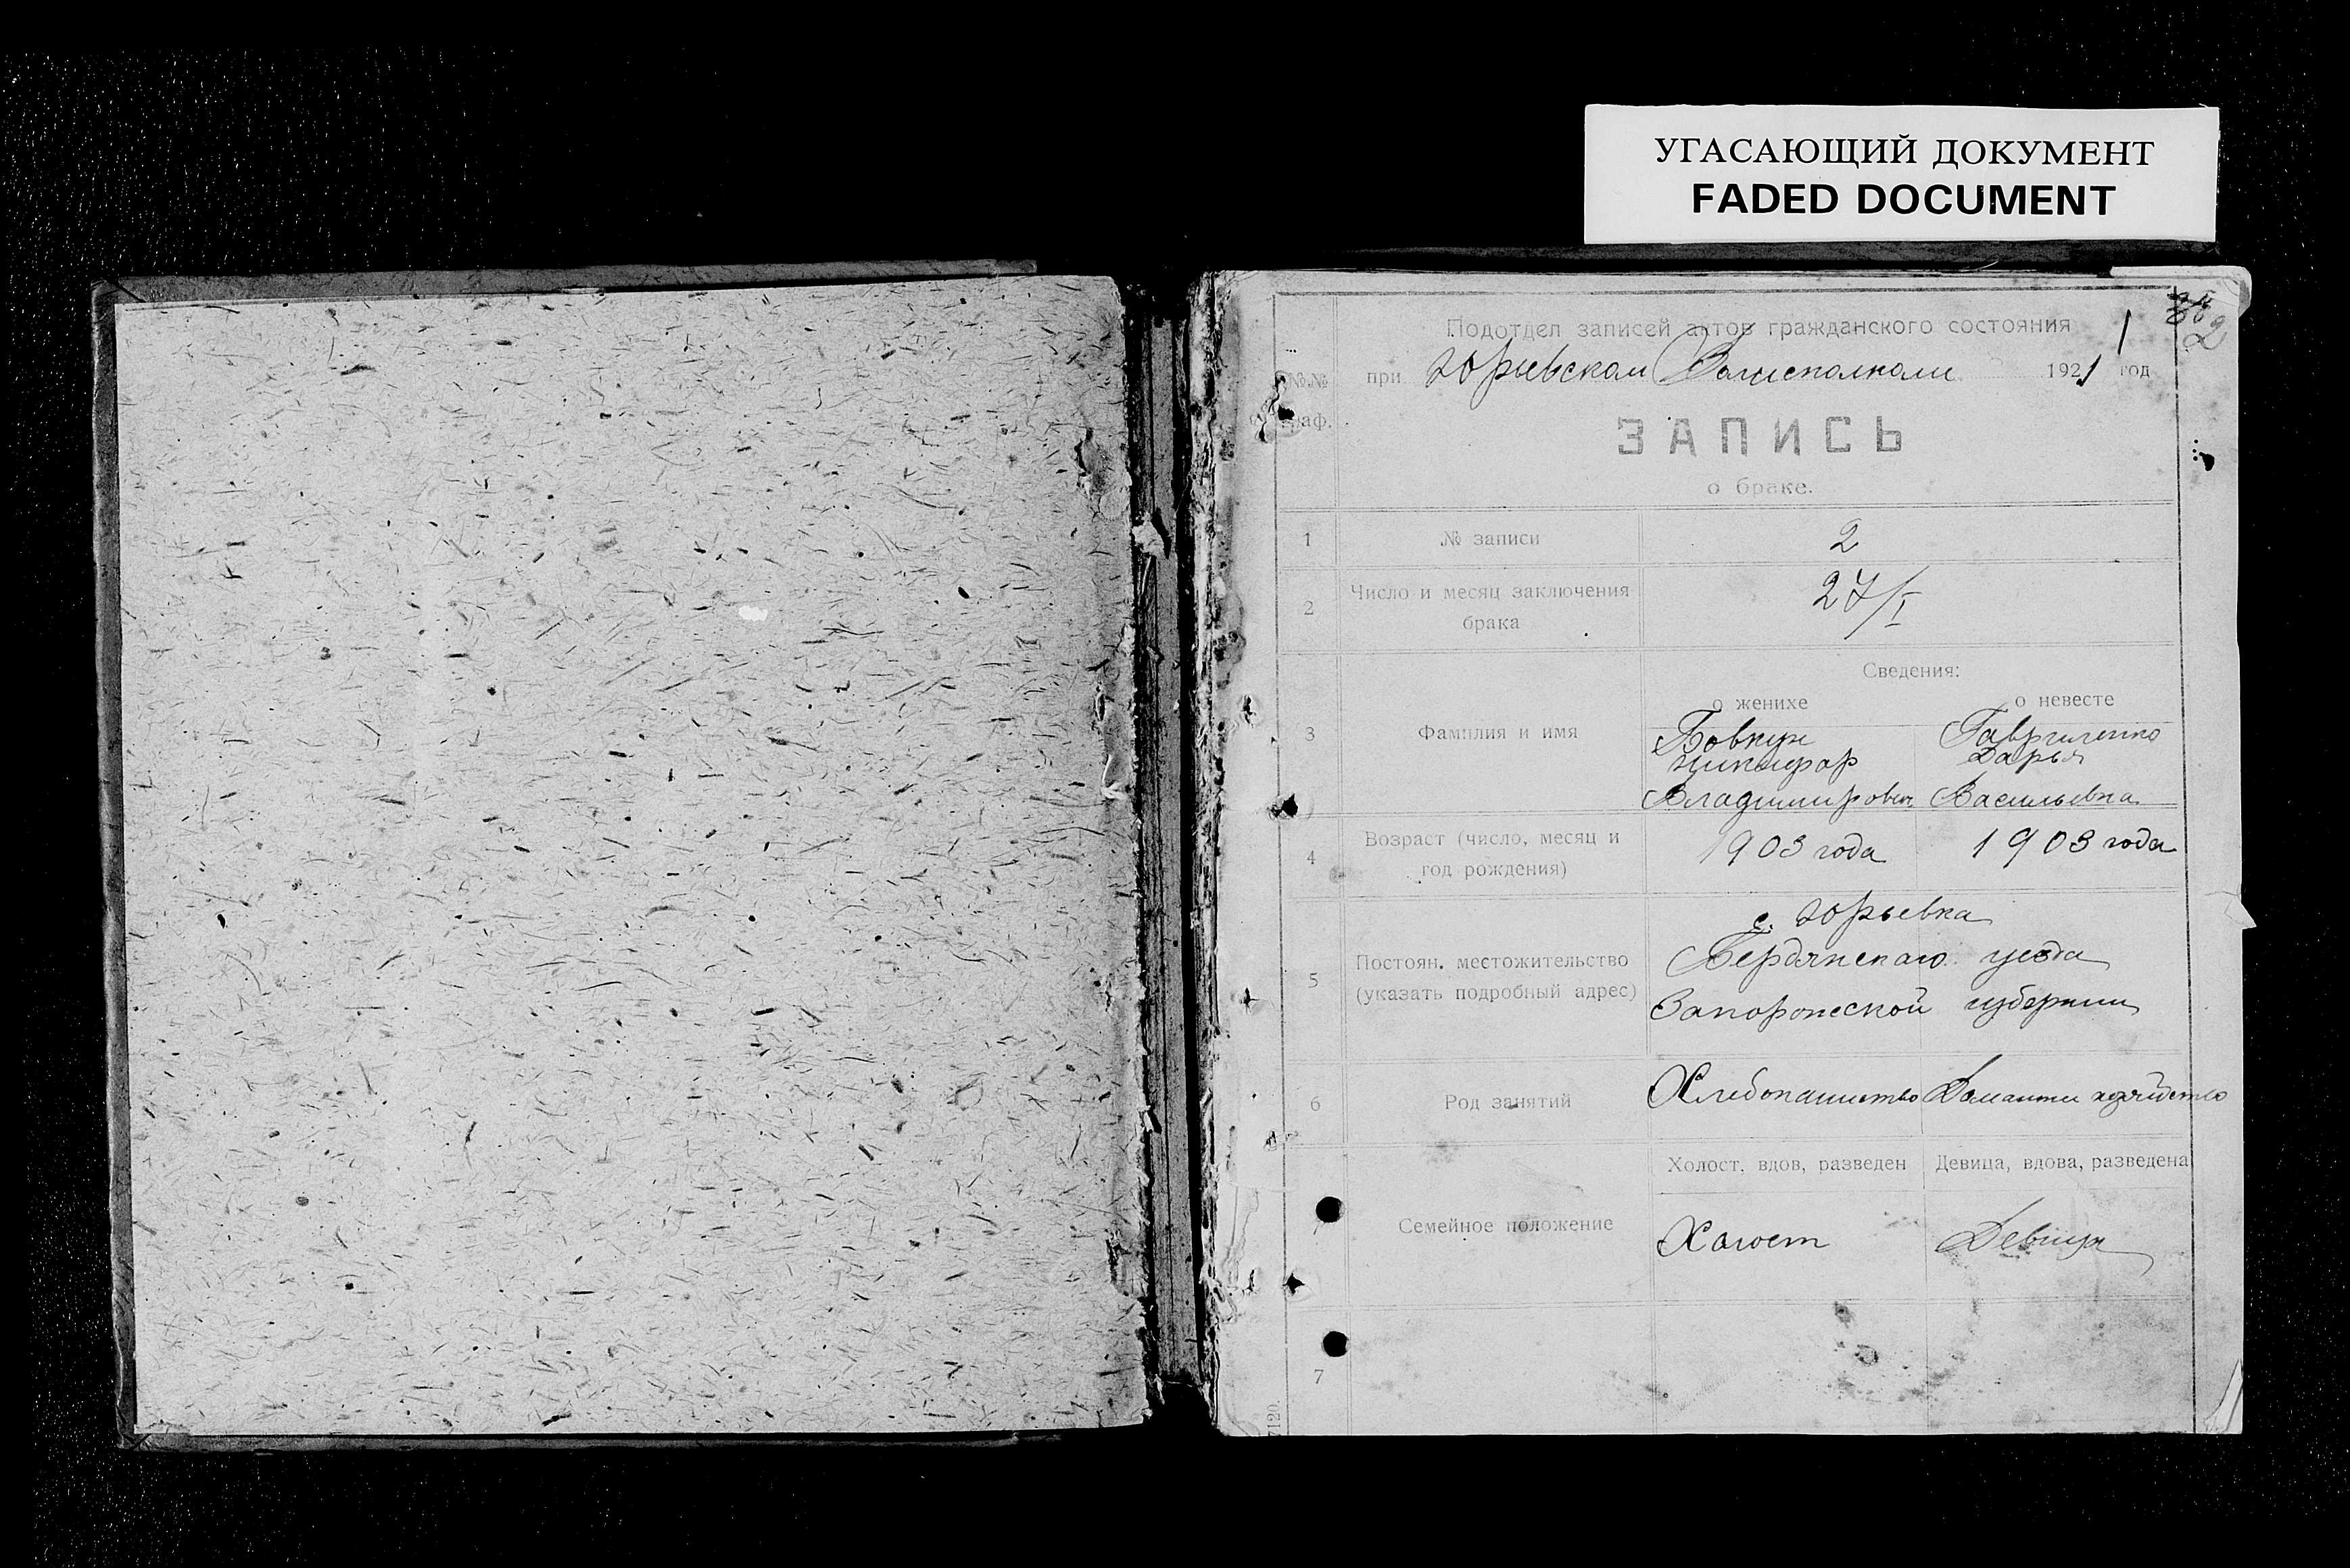 УГАСАЮЩИЙ ДОКУМЕНТ
FADED DOCUMENT
2
Подотдел записей актов гражданского состояния
1
№№ при Юрьевском Волисполкоми 1921 год
граф.
ЗАПИСЬ
о браке.
1 № записи 2
2 Число и месяц заключения брака 27/I
Сведения:
о женихе о невесте
3 Фамилия и имя Бовкун Гавриленко
Никифор Дарья
Владимирович Васильевна
4 Возраст (число, месяц и год рождения) 1903 года 1903 года
5 Постоян. местожительство (указать подробный адрес) с. Юрьевка
Бердянского уезда
Запорожской губернии
6 Род занятий Хлебопашество Домашнее хозяйство
Холост, вдов, разведен Девица, вдова, разведена
7 Семейное положение Холост Девица
7
7120.